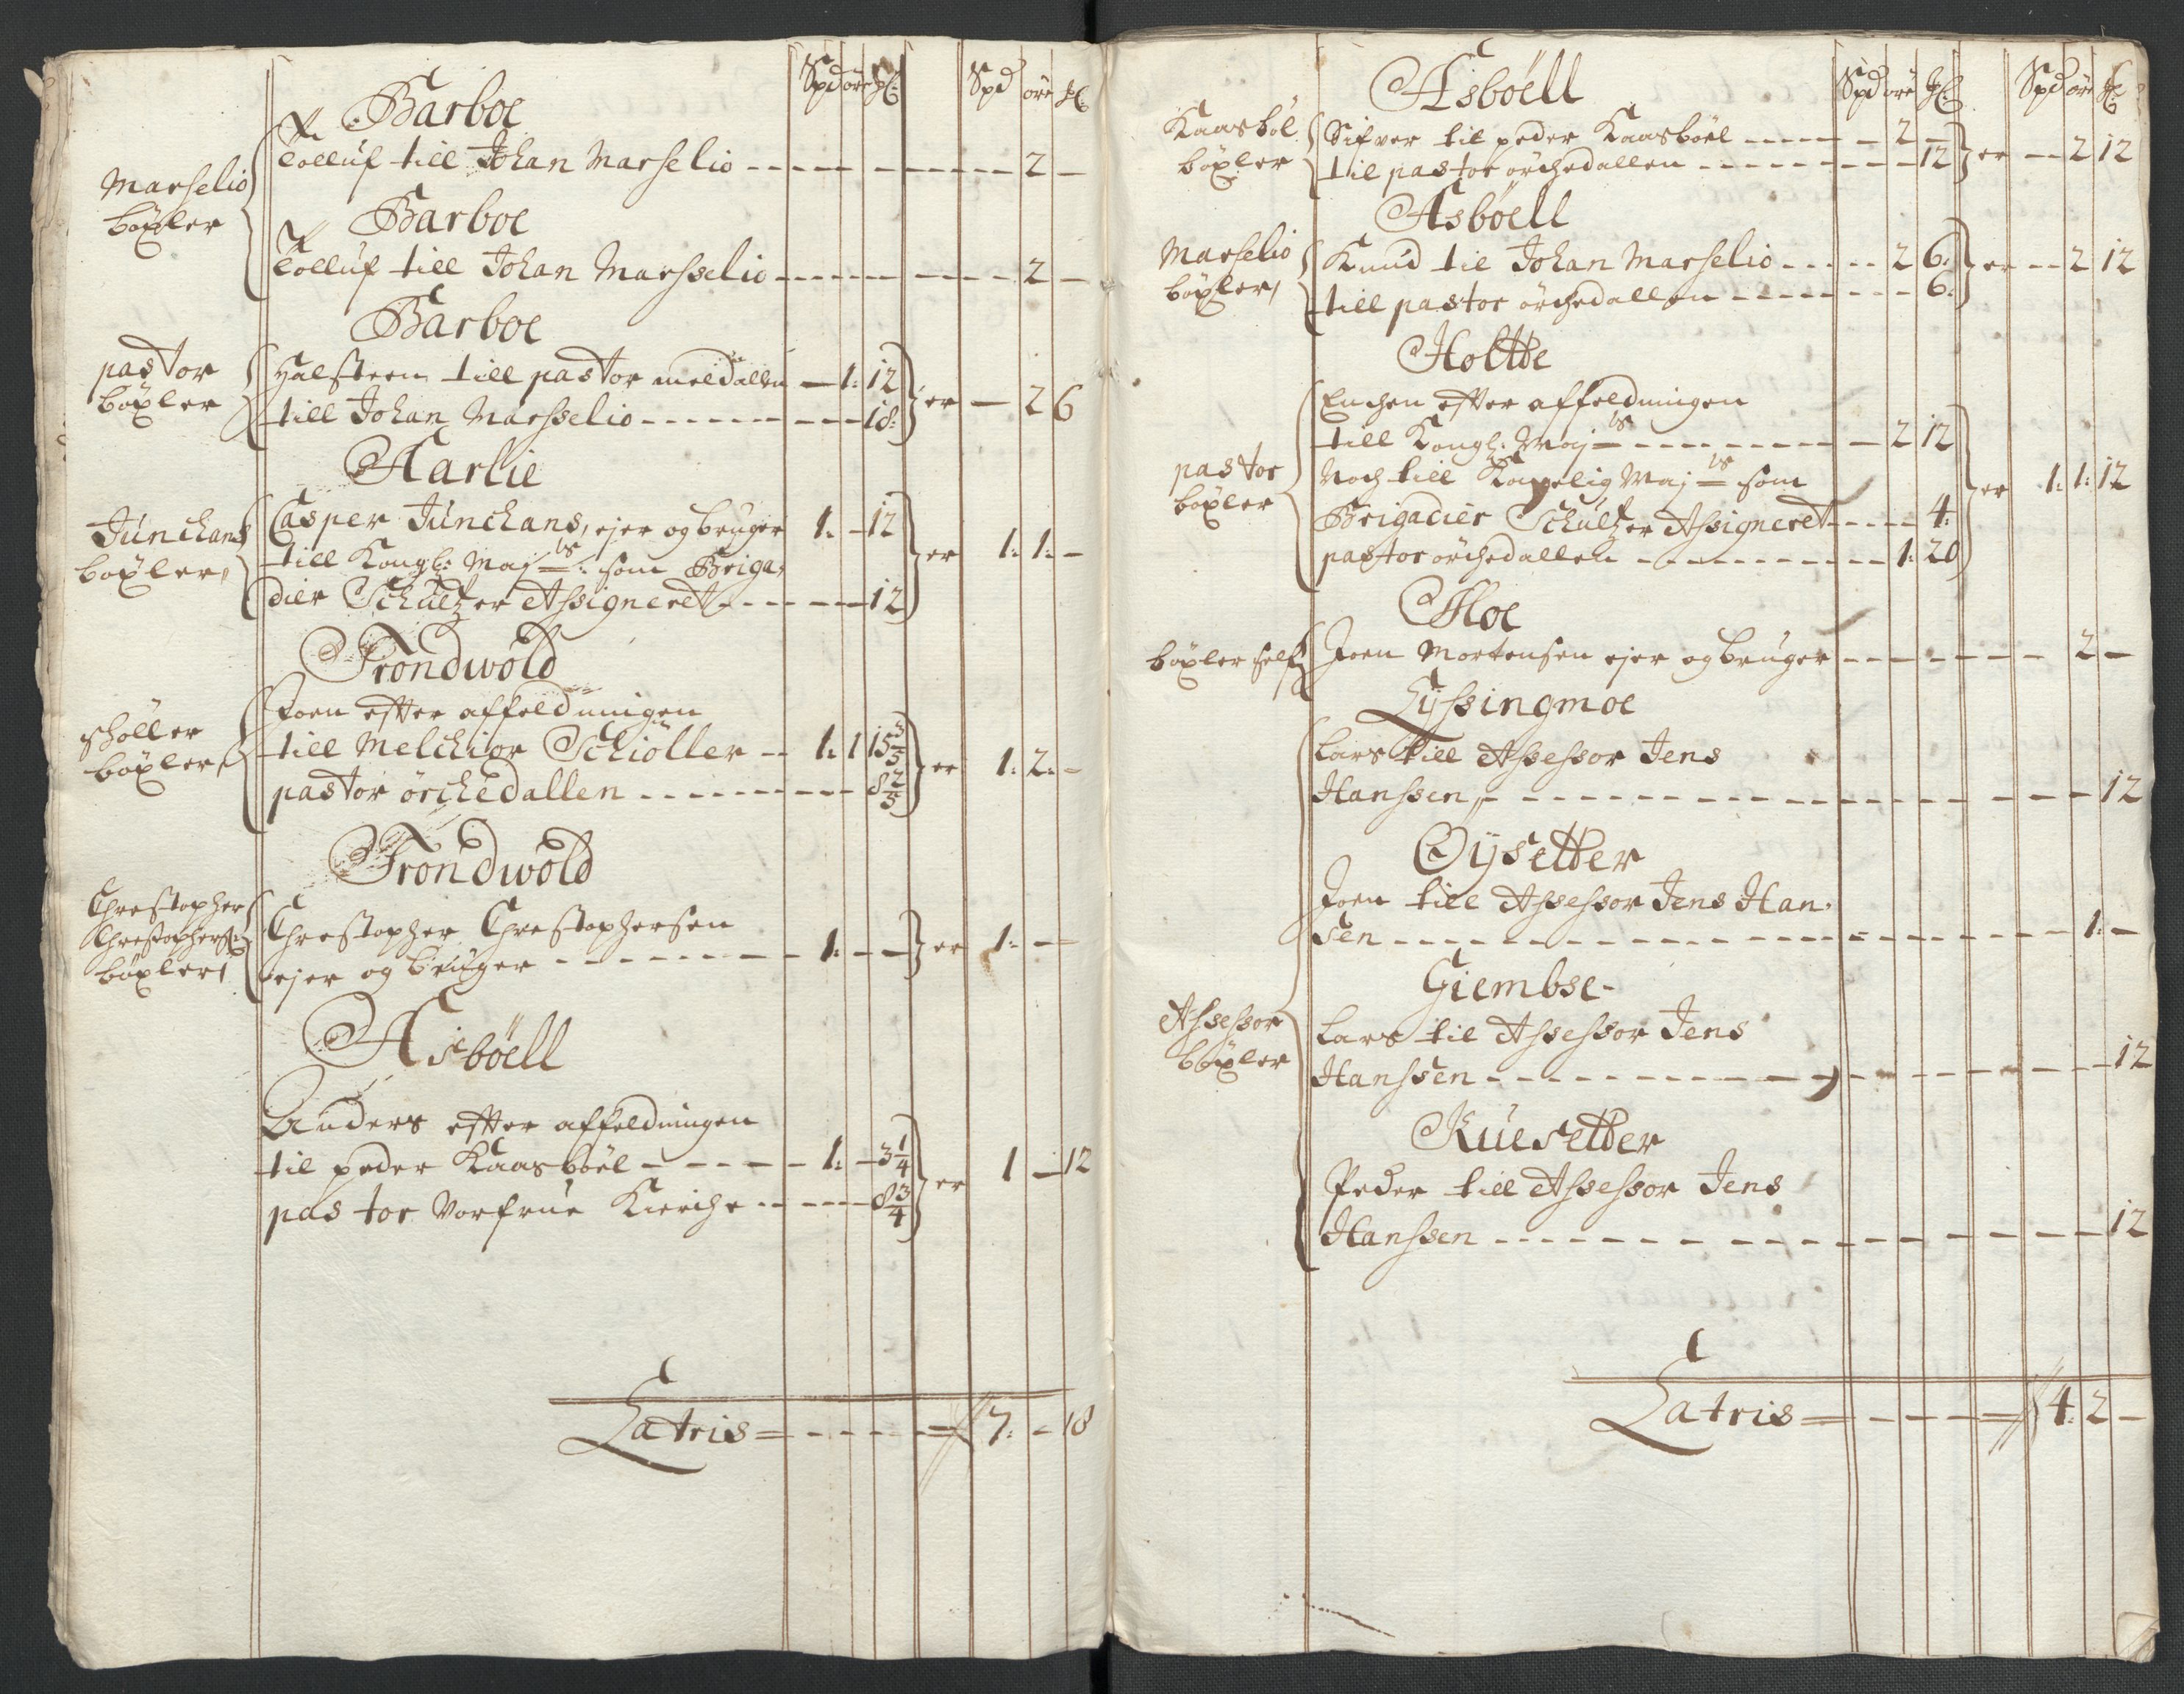 Spd øre
Spd øre
Barboe
Marselio
bøxler
Tolluf till Johan Marselio - - - 2 -
Barboe
Tolluf till Johan Marsselio - - - 2 -
Barboe
pastor
bøxler
Halsteen till pastor meldallen - 1: 12
till Johan Marsselio - - - 18: } er - 2 6
Aarlie
Junchans
bøxler
Casper Junchans, ejer og bruger 1: - 12
till Kongl: Maj ts: som Briga,
dier Schultz er Assigneret - - - 12 } er 1: 1: -
Trondwold
schøller
bøxler
Joen efter affeldningen
till Melchior Schiøller - - 1: 1 15 3/5
pastor örchedallen - - - 8 2/5 } er 1: 2: -
Trondwold
Chrestopher
Chrestophers:
bøxler
Chrestopher Chrestophersen
ejer og bruger - - - 1: - - } er 1: - -
Asbøell
Anders efter affeldningen
til peder Kaasbøel - - - 1: - 3 1/4
pastor Vorfrue Kierche - - - 8 3/4 } er 1 - 12
Latris = - - - 7: - 18
Spd øre
Spd øre
Asbøell
Kaasbøl
bøxler
Sifver til peder Kaasbøel - - - 2 -
til pastor örchedallen - - - 12 } er - - 2 12
Asbøell
Marselio
bøxler
Knud til Johan Marselio - - - 2 6:
till pastor örchedallen - - - 6: } er - - 2 12
Holtte
pastor
bøxler
Enchen efter affeldningen
till Kongl: Maj ts - - - 2 12
Noch till Kongelig Maj ts som
Brigadier Schultz er Assigneret - - - 4:
pastor örchedallen - - - 1: 20 } er 1: 1: 12
Moe
bøxler self
Joen Mortensen ejer og bruger - - - 2 -
Lyssingmoe
Lars till Assessor Jens
Hanssen, - - - 12
Øysetter
Joen till Assessor Jens Han,
sen - - - 1: -
Giembse-
Assessor
bøxler
Lars til Assessor Jens
Hanssen - - - 12
Kuesetter
Peder till Assessor Jens
Hanssen - - - 12
Latris = - - - 4: 2 -